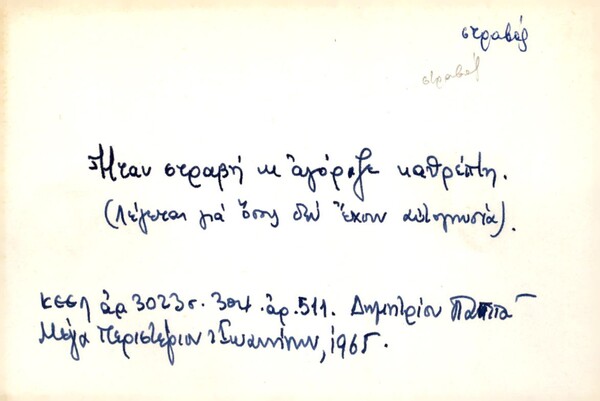 στραβός
στραβός
Ἤταν στραβή κι ἀγόραζε καθρέπτη.
(Λέγεται γιά ὅσους δέν ἔχουν αὐτογνωσία).
ΚΕΕΛ ἀρ 3023 σ. ἀρ. 511. Δημητρίου Παππᾶ
Μέγα Περιστέριον Ἰωαννίνων, 1965.